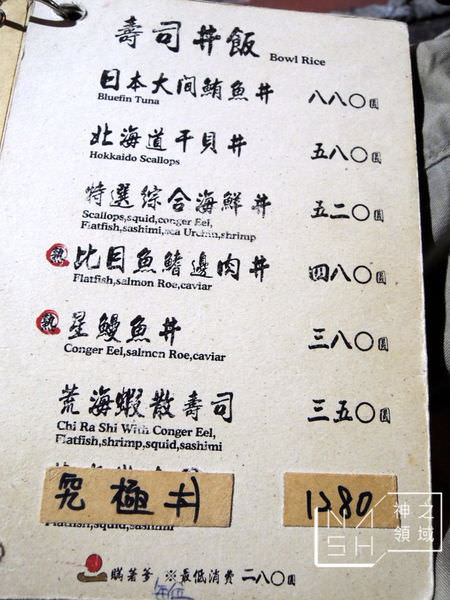 壽司丼飯
Bowl Rice
日本大间鮪魚丼 八八〇圓
Bluefin Tuna
北海道干貝丼 五八〇圓
Hokkaido Scallops
特選綜合海鮮丼 五二〇圓
Scallops,squid,conger Eel,
Flatfish,sashimi,sea Urchin,shrimp
熱 比目魚鰭邊肉丼 四八〇圓
Flatfish,salmon Roe,caviar
熱 星鰻魚丼 三八〇圓
Conger Eel,salmon Roe,caviar
荒海蝦散壽司 三五〇圓
Chi Ra Shi With Conger Eel,
Flatfish,shrimp,squid,sashimi
究極丼 1280
Flatfish,squid,sashimi
瞞著爹 ※最低消費 二八〇圓
每位
神之領域
NMSH